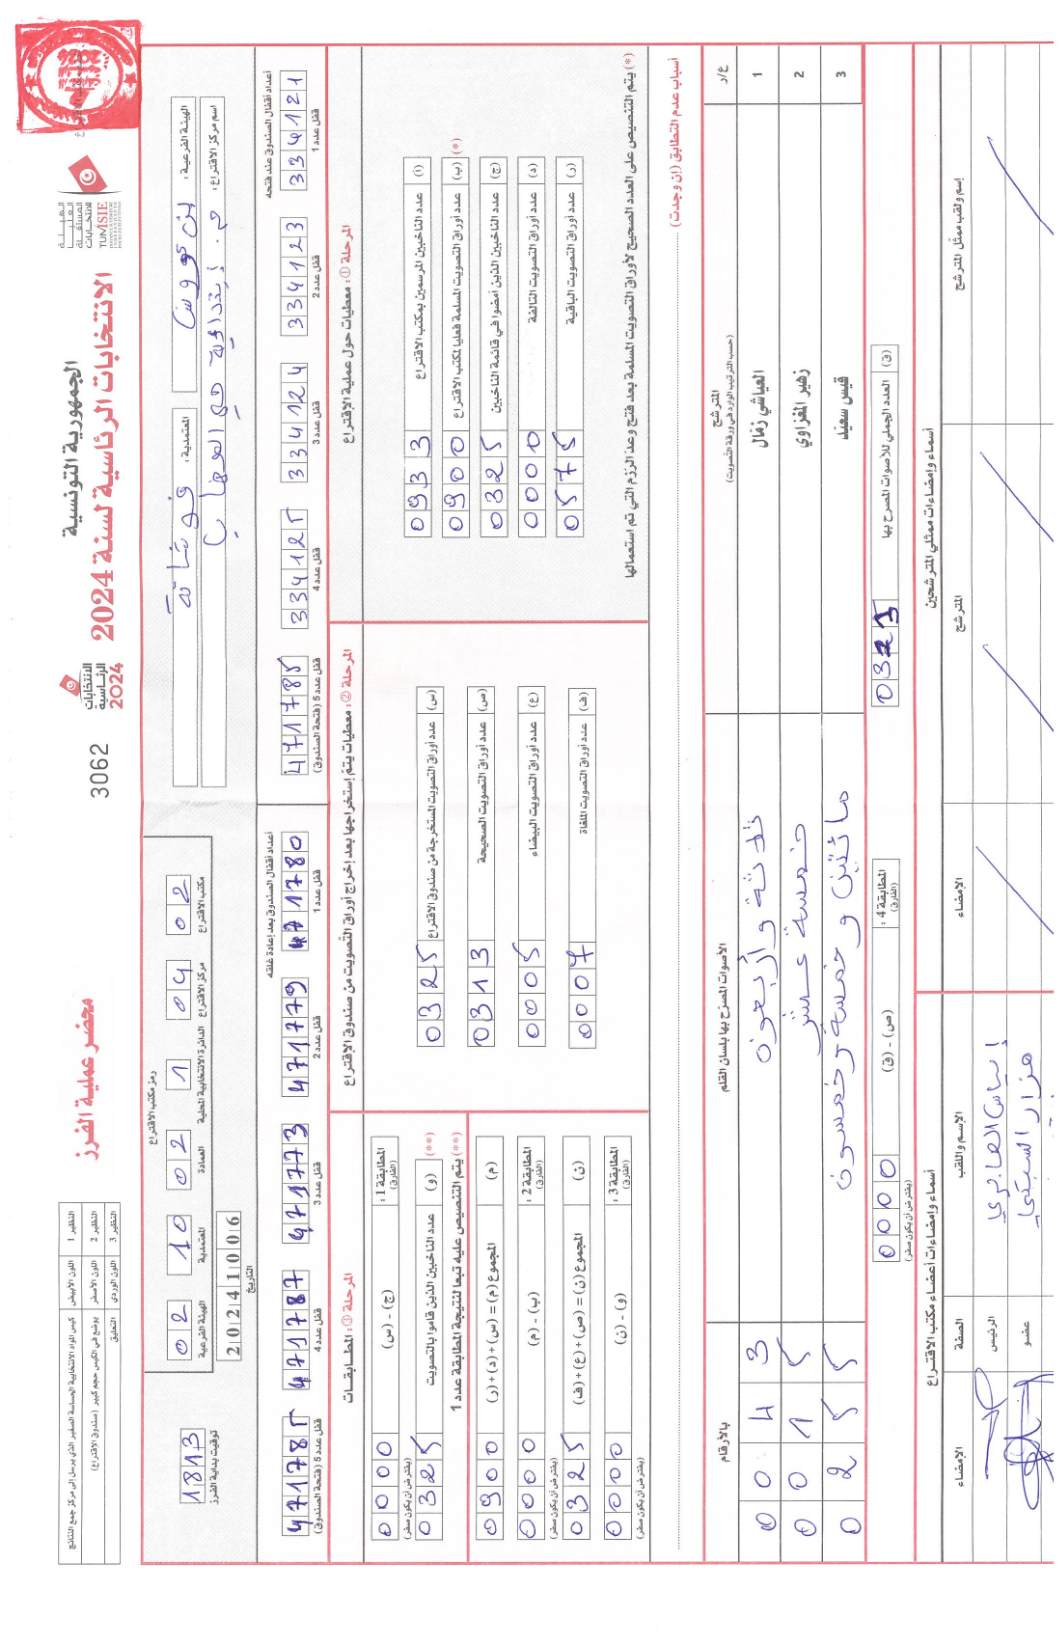 الجمهورية التونسية
الانتخابات الرئاسية لسنة 2024
الهيئة العليا المستقلة للانتخابات
TUNISIE
الانتخابات الرئاسية 2024
3062
محضر عملية الفرز
النظير 1 اللون الأبيض
النظير 2 اللون الأصفر يوضع في الكيس حجم كبير (صندوق الاقتراع)
النظير 3 اللون الوردي التعليق
الهيئة الفرعية :
المعتمدية : فوشانة
بن عروس
اسم مركز الاقتراع : م. إبتدائية حي
رمز مكتب الاقتراع
مكتب الاقتراع 02
مركز الاقتراع 04
الدائرة الانتخابية المحلية 1
العمادة 02
المعتمدية 10
الهيئة الفرعية 02
20241006
التاريخ
1813
توقيت بداية الفرز
أعداد أقفال الصندوق عند فتحه
334121 قفل عدد 1
334123 قفل عدد 2
334124 قفل عدد 3
334125 قفل عدد 4
471785 قفل عدد 5 (فتحة الصندوق)
أعداد أقفال الصندوق بعد إعادة غلقه
471780 قفل عدد 1
471779 قفل عدد 2
471773 قفل عدد 3
471787 قفل عدد 4
471785 قفل عدد 5 (فتحة الصندوق)
المرحلة ① : معطيات حول عملية الاقتراع
(ا) عدد الناخبين المرسمين بمكتب الاقتراع 0933
(*) (ب) عدد أوراق التصويت المسلمة فعليا لمكتب الاقتراع 0900
(ج) عدد الناخبين الذين أمضوا في قائمة الناخبين 0325
(د) عدد أوراق التصويت التالفة 0000
(ر) عدد أوراق التصويت الباقية 0575
(*) يتم التنصيص على العدد الصحيح لأوراق التصويت المسلمة بعد فتح وعد الرزم التي تم استعمالها
المرحلة ② : معطيات يتم إستخراجها بعد إخراج أوراق التصويت من صندوق الإقتراع
(س) عدد أوراق التصويت المستخرجة من صندوق الاقتراع 0325
(ص) عدد أوراق التصويت الصحيحة 0313
(ع) عدد أوراق التصويت البيضاء 0005
(ف) عدد أوراق التصويت الملغاة 0007
المرحلة ③ : المطابقات
المطابقة 1 : (الفارق) (ج) - (س) 0000 (يفترض أن يكون صفر)
(**) (و) عدد الناخبين الذين قاموا بالتصويت 0325
(**) يتم التنصيص عليه تبعا لنتيجة المطابقة عدد 1
(م) المجموع (م) = (س) + (د) + (ر) 0900
المطابقة 2 : (الفارق) (ب) - (م) 0000 (يفترض أن يكون صفر)
(ن) المجموع (ن) = (ص) + (ع) + (ف) 0325
المطابقة 3 : (الفارق) (و) - (ن) 0000 (يفترض أن يكون صفر)
أسباب عدم التطابق (إن وجدت)
ع/ر
المترشح
(حسب الترتيب الوارد في ورقة التصويت)
الأصوات المصرح بها بلسان القلم
بالأرقام
1 العياشي زمال ثلاثة وأربعون 0043
2 زهير المغزاوي خمسة عشر 0015
3 قيس سعيد مائتين وخمسة وخمسون 0255
(ق) العدد الجملي للأصوات المصرح بها
المطابقة 4 : (الفارق) (ص) - (ق) 0000 (يفترض أن يكون صفر)
أسماء وإمضاءات ممثلي المترشحين
إسم ولقب ممثل المترشح المترشح الإمضاء
أسماء وإمضاءات أعضاء مكتب الاقتراع
الإسم واللقب الصفة الإمضاء
الرئيس
عضو